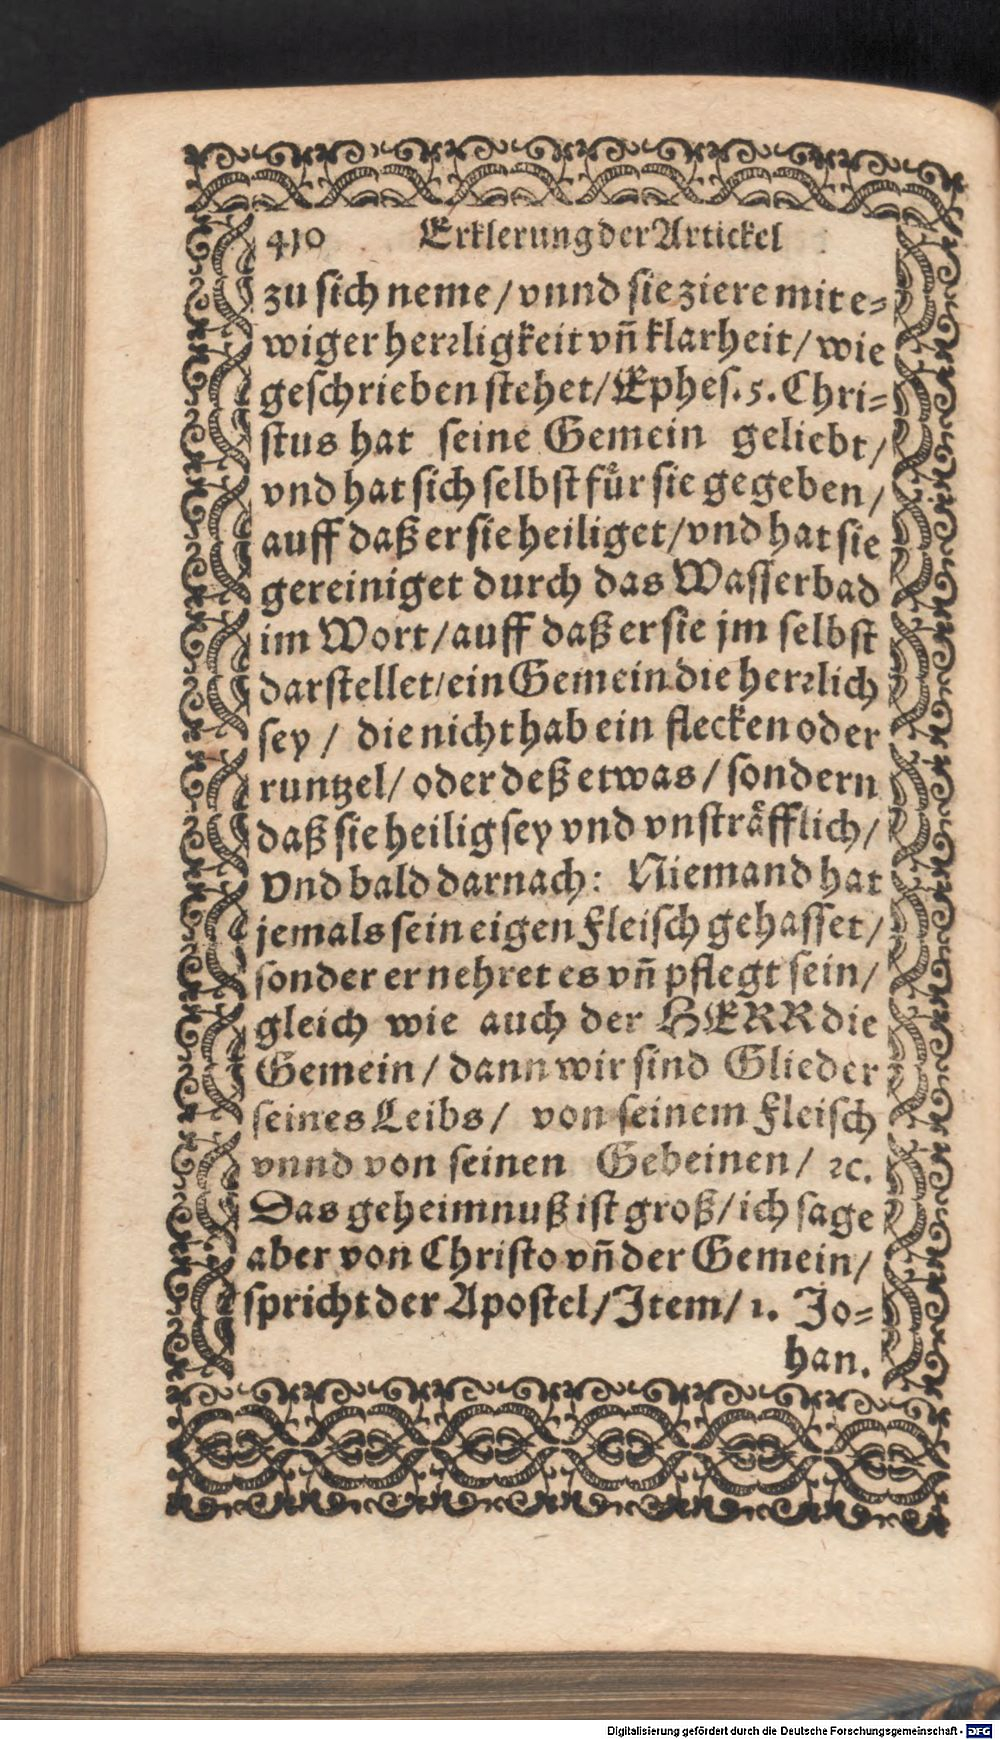 410 Erklerung der Artickel
zu sich neme / vnnd sie ziere mit e⸗
wiger herꝛligkeit vñ klarheit / wie
geschrieben stehet / Ephes. 5. Chri⸗
stus hat seine Gemein geliebt /
vnd hat sich selbst fuͤr sie gegeben /
auff daß er sie heiliget / vnd hat sie
gereiniget durch das Wasserbad
im Wort / auff daß er sie jm selbst
darstellet / ein Gemein die herꝛlich
sey / die nicht hab ein flecken oder
runtzel / oder deß etwas / sondern
daß sie heilig sey vnd vnstraͤfflich /
Vnd bald darnach: Niemand hat
jemals sein eigen Fleisch gehasset /
sonder er nehret es vñ pflegt sein /
gleich wie auch der HERR die
Gemein / dann wir sind Glieder
seines Leibs / von seinem Fleisch
vnnd von seinen Gebeinen / ꝛc.
Das geheimnuß ist groß / ich sage
aber von Christo vñ der Gemein /
spricht der Apostel / Item / 1. Jo⸗
han.
Digitalisierung gefördert durch die Deutsche Forschungsgemeinschaft - DFG